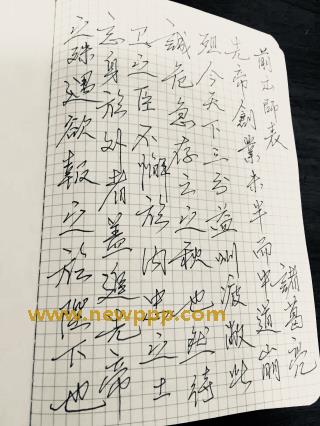 前出師表 諸葛亮
先帝創業未半而中道崩
殂今天下三分益州疲敝此
誠危急存亡之秋也然侍
卫之臣不懈於内中之士
忘身於外者盖追先帝
之殊遇欲報之於陛下也
www.newppp.com